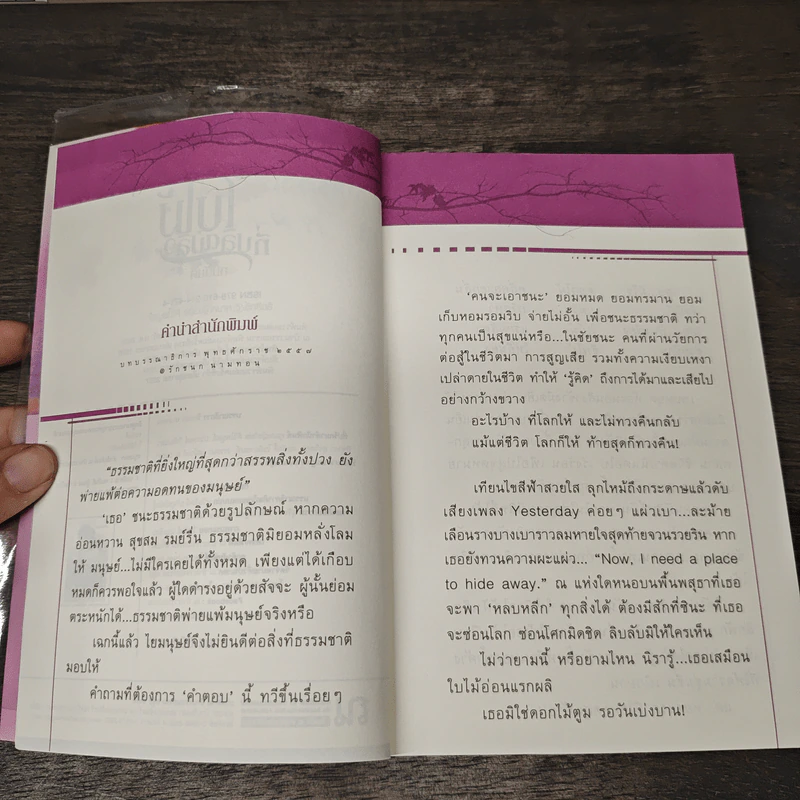 คำนำสำนักพิมพ์
บทบรรณาธิการ พุทธศักราช ๒๕๕๗
๏รักชนก นามทอน
“ธรรมชาติที่ยิ่งใหญ่ที่สุดกว่าสรรพสิ่งทั้งปวง ยัง
พ่ายแพ้ต่อความอดทนของมนุษย์”
‘เธอ’ ชนะธรรมชาติด้วยรูปลักษณ์ หากความ
อ่อนหวาน สุขสม รมย์รื่น ธรรมชาติมิยอมหลั่งโลม
ให้ มนุษย์...ไม่มีใครเคยได้ทั้งหมด เพียงแต่ได้เกือบ
หมดก็ควรพอใจแล้ว ผู้ใดดำรงอยู่ด้วยสัจจะ ผู้นั้นย่อม
ตระหนักได้...ธรรมชาติพ่ายแพ้มนุษย์จริงหรือ
เฉกนี้แล้ว ไยมนุษย์จึงไม่ยินดีต่อสิ่งที่ธรรมชาติ
มอบให้
คำถามที่ต้องการ ‘คำตอบ’ นี้ ทวีขึ้นเรื่อยๆ
‘คนจะเอาชนะ’ ยอมหมด ยอมทรมาน ยอม
เก็บหอมรอมริบ จ่ายไม่อั้น เพื่อชนะธรรมชาติ ทว่า
ทุกคนเป็นสุขแน่หรือ...ในชัยชนะ คนที่ผ่านวัยการ
ต่อสู้ในชีวิตมา การสูญเสีย รวมทั้งความเงียบเหงา
เปล่าดายในชีวิต ทำให้ ‘รู้คิด’ ถึงการได้มาและเสียไป
อย่างกว้างขวาง
อะไรบ้าง ที่โลกให้ และไม่ทวงคืนกลับ
แม้แต่ชีวิต โลกก็ให้ ท้ายสุดก็ทวงคืน!
เทียนไขสีฟ้าสวยใส ลุกไหม้ถึงกระดาษแล้วดับ
เสียงเพลง Yesterday ค่อยๆ แผ่วเบา...ละม้าย
เลือนรางบางเบาราวลมหายใจสุดท้ายจวนรวยริน หาก
เธอยังทวนความผะแผ่ว... “Now, I need a place
to hide away.” ณ แห่งใดหนอบนพื้นพสุธาที่เธอ
จะพา ‘หลบหลีก’ ทุกสิ่งได้ ต้องมีสักที่ซินะ ที่เธอ
จะซ่อนโลก ซ่อนโศกมิดชิด ลิบลับมิให้ใครเห็น
ไม่ว่ายามนี้ หรือยามไหน นิรารู้...เธอเสมือน
ใบไม้อ่อนแรกผลิ
เธอมิใช่ดอกไม้ตูม รอวันเบ่งบาน!